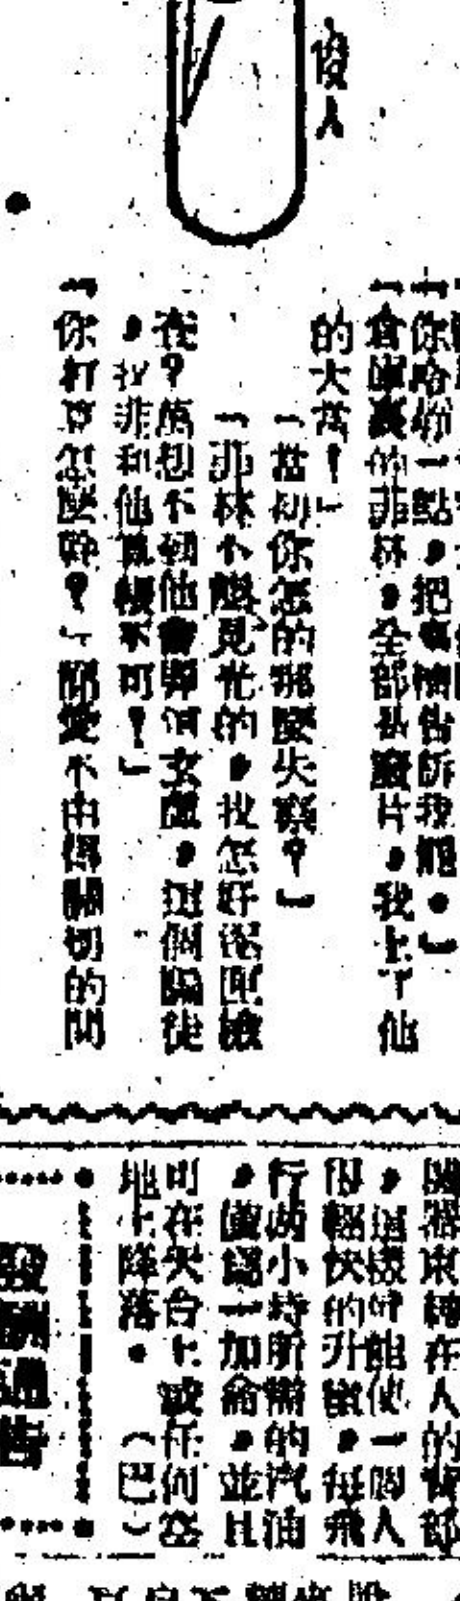 俊人
「你冷靜一點，把事情告訴我罷。」
「倉庫裏的菲林，全部是廢片，我上了他
的大當！」
「當初你怎的那麼失察？」
「菲林不能見光的，我怎好逐匣檢
查？萬想不到他會弄這玄虛，這個騙徒
，我非和他算帳不可！」
「你打算怎麼幹？」蘭愛不由得關切的問
在人的背部
，這機可能使一個人
很輕快的升空，每飛
行兩小時所需的汽油
，僅為一加侖，並且
可在天台上或任何空
地上降落。（巴）
發酬通告